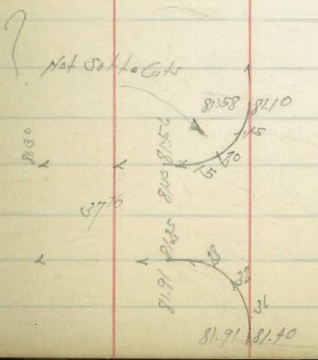 Not Set to Cuts
81.58 81.10
15
20
15
81.56
81.30
81.85
28
32
36
81.91
81.91 81.40